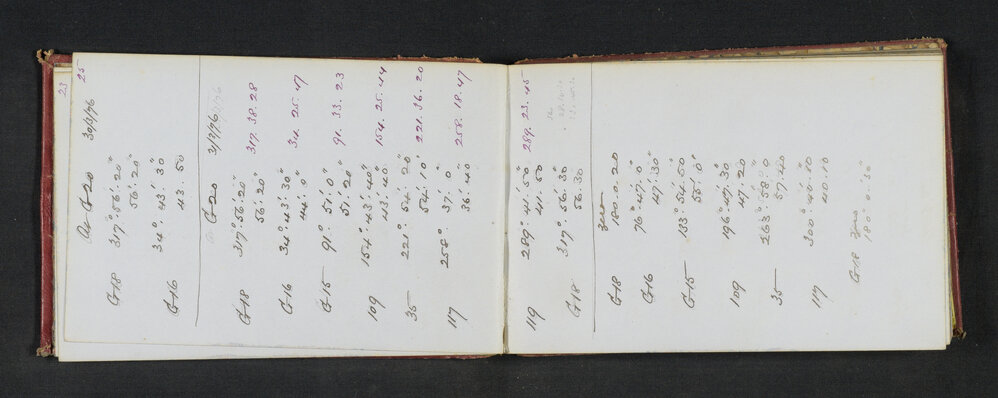 23
25
At G-20 30/3/76
G18 317°.56'.20"
56'.20"
G16 34°.43'.30"
43.50
G-20 31/3/76
G18 317°.56'.20" 317.38.28
56'.20"
G16 34°.43'.30" 34.25.47
44'.0"
G15 91°.51'.0" 91.33.23
51'.20"
109 154°.43'.40" 154.25.44
43'.40"
35 221°.54'.20" 221.36.20
54'.10"
117 258°.37'.0" 258.18.47
36'.40"
119 289°.41'.50" 289.23.45
41.50
G18 317°.56'.30"
56.30
Zero
G18 180.0.20
G16 76°.47'.0"
47'.30"
G15 133°.54'.50"
55'.0"
109 196°.47'.30
47.20
35 263°.58'.0
57.40
117 300°.40'.50"
40.10
Zero
G18 180°.0'.30"